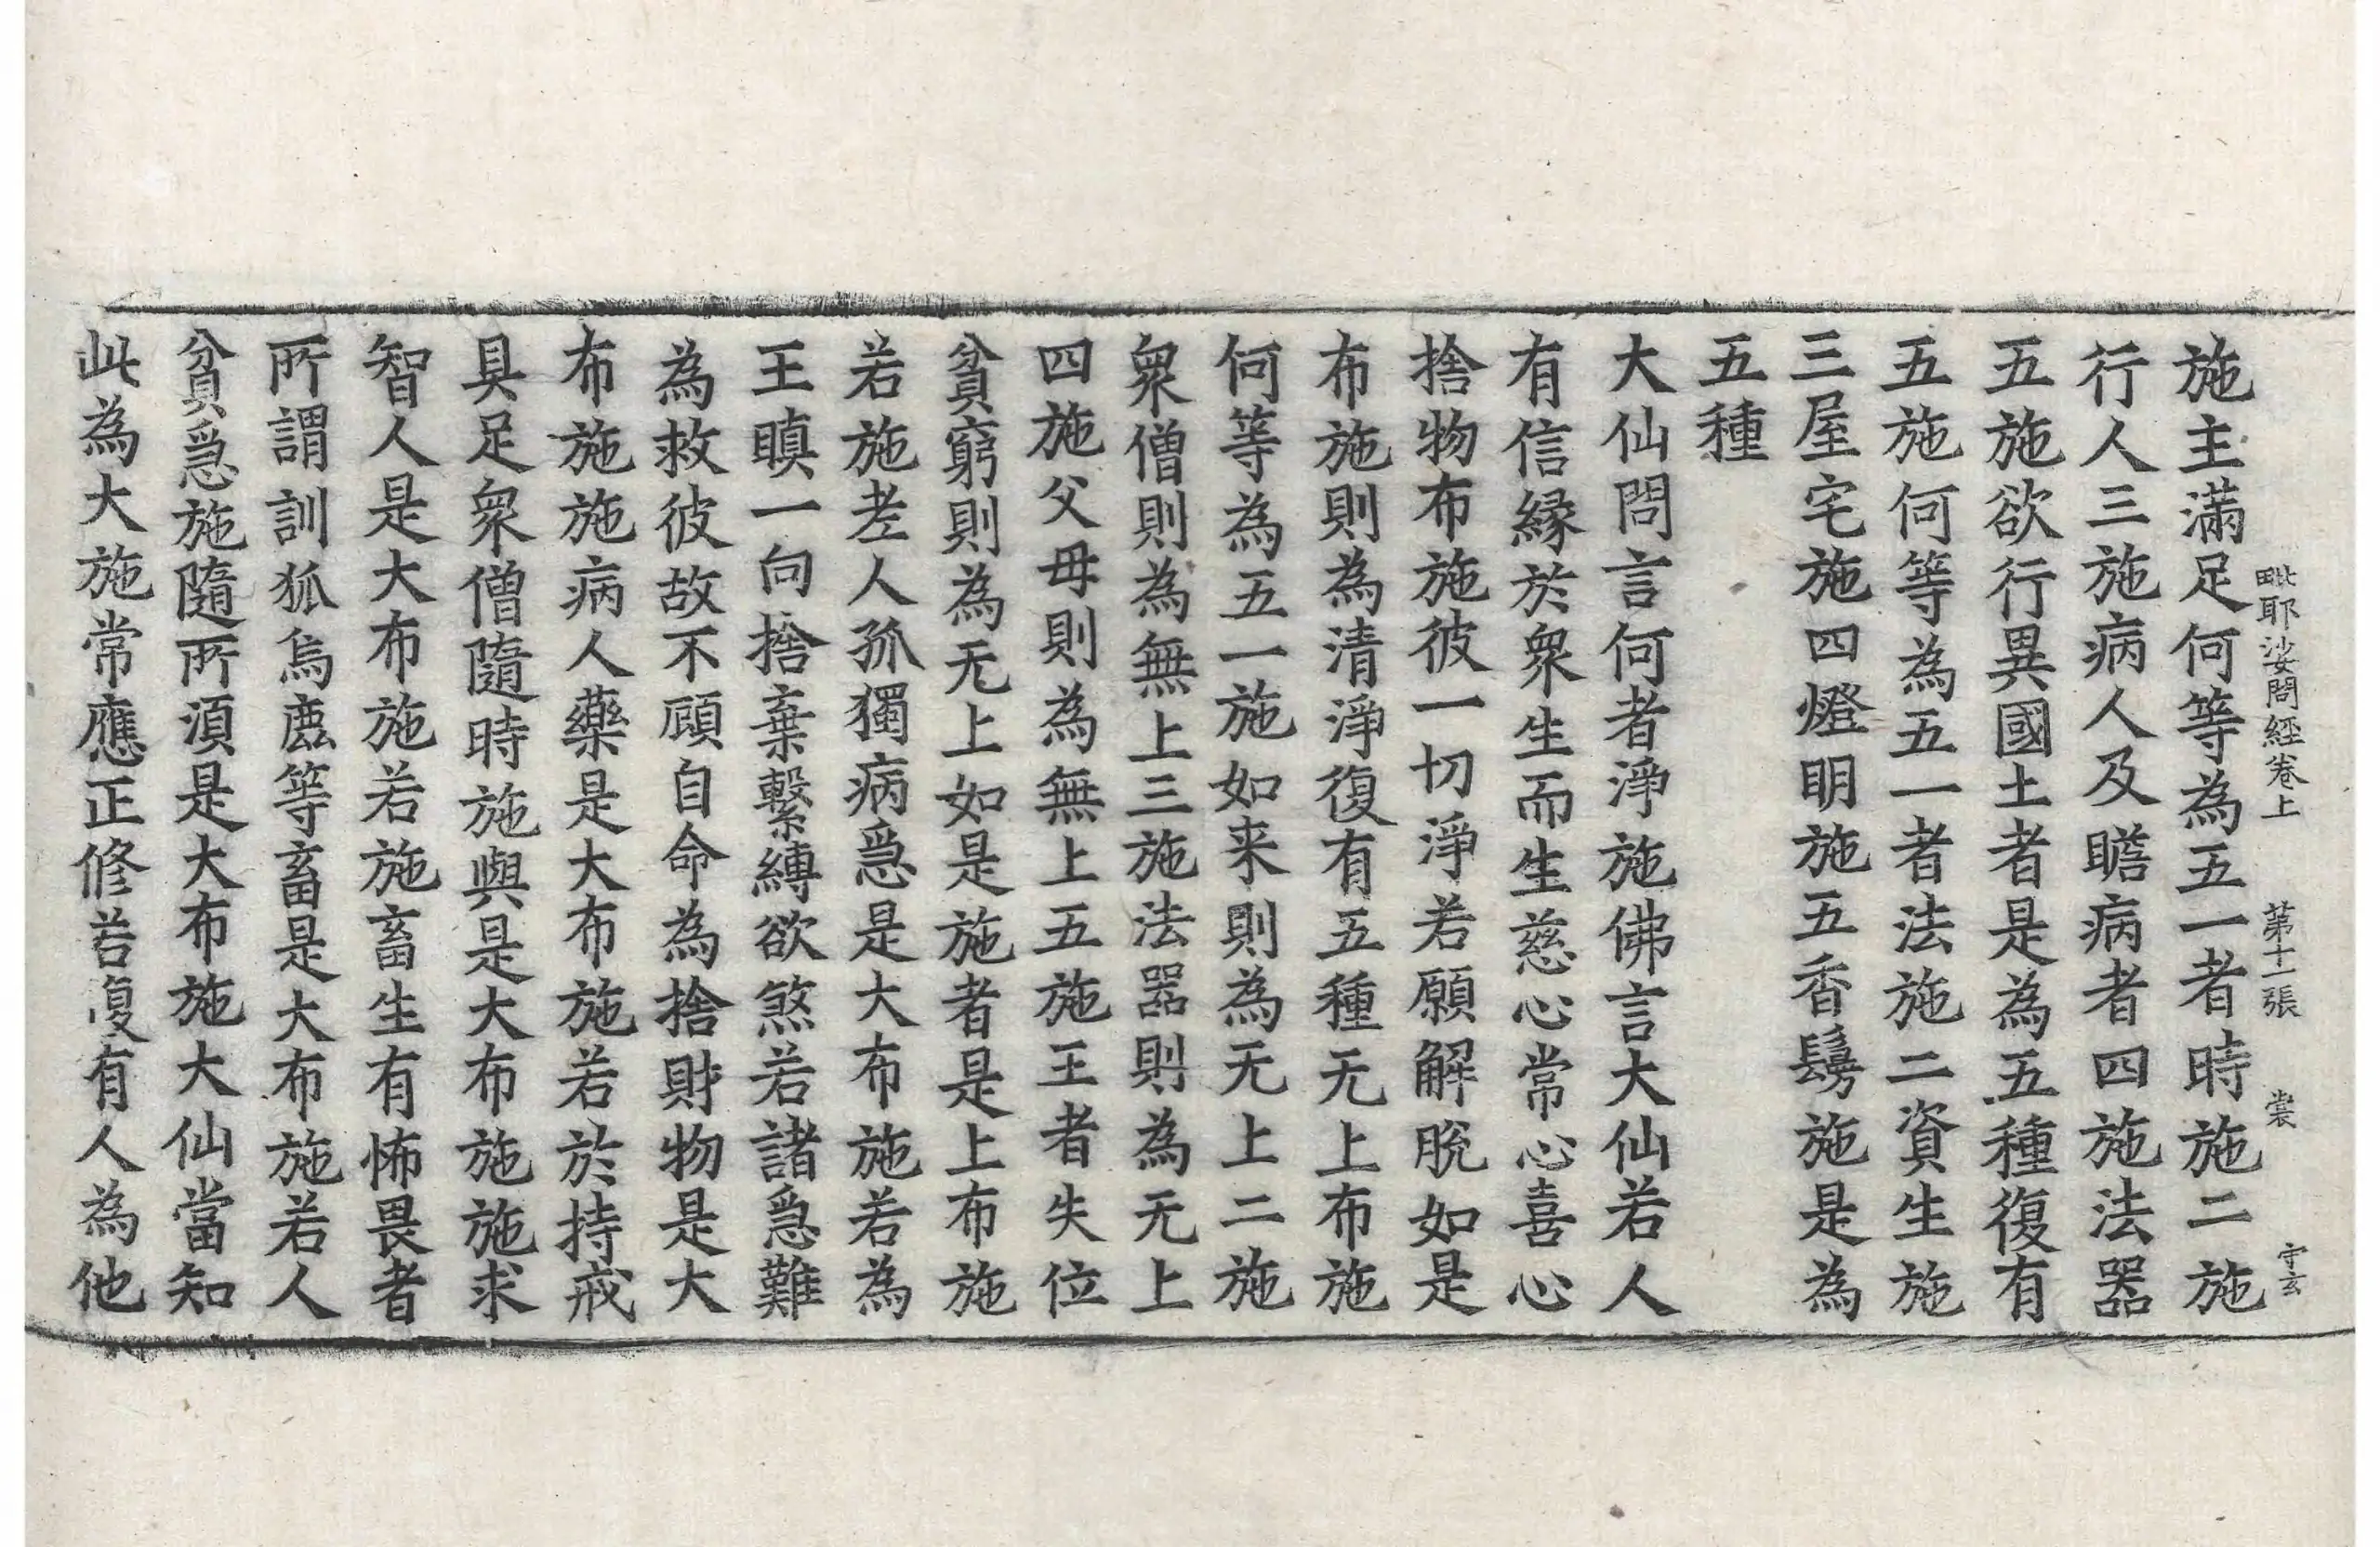 毗耶娑問經卷上 第十一張 裳 守玄
施主滿足何等為五一者時施二施
行人三施病人及瞻病者四施法器
五施欲行異國土者是為五種復有
五施何等為五一者法施二資生施
三屋宅施四燈明施五香鬘施是為
五種
大仙問言何者淨施佛言大仙若人
有信緣於衆生而生慈心常心喜心
捨物布施彼一切淨若願解脫如是
布施則為清淨復有五種无上布施
何等為五一施如来則為无上二施
衆僧則為無上三施法器則為无上
四施父母則為無上五施王者失位
貧窮則為无上如是施者是上布施
若施老人孤獨病急是大布施若為
王瞋一向捨棄繫縛欲煞若諸急難
為救彼故不顧自命為捨財物是大
布施施病人藥是大布施若於持戒
具足衆僧隨時施與是大布施施求
智人是大布施若施畜生有怖畏者
所謂訓狐烏鹿等畜是大布施若人
貧急施隨所須是大布施大仙當知
此為大施常應正修若復有人為他